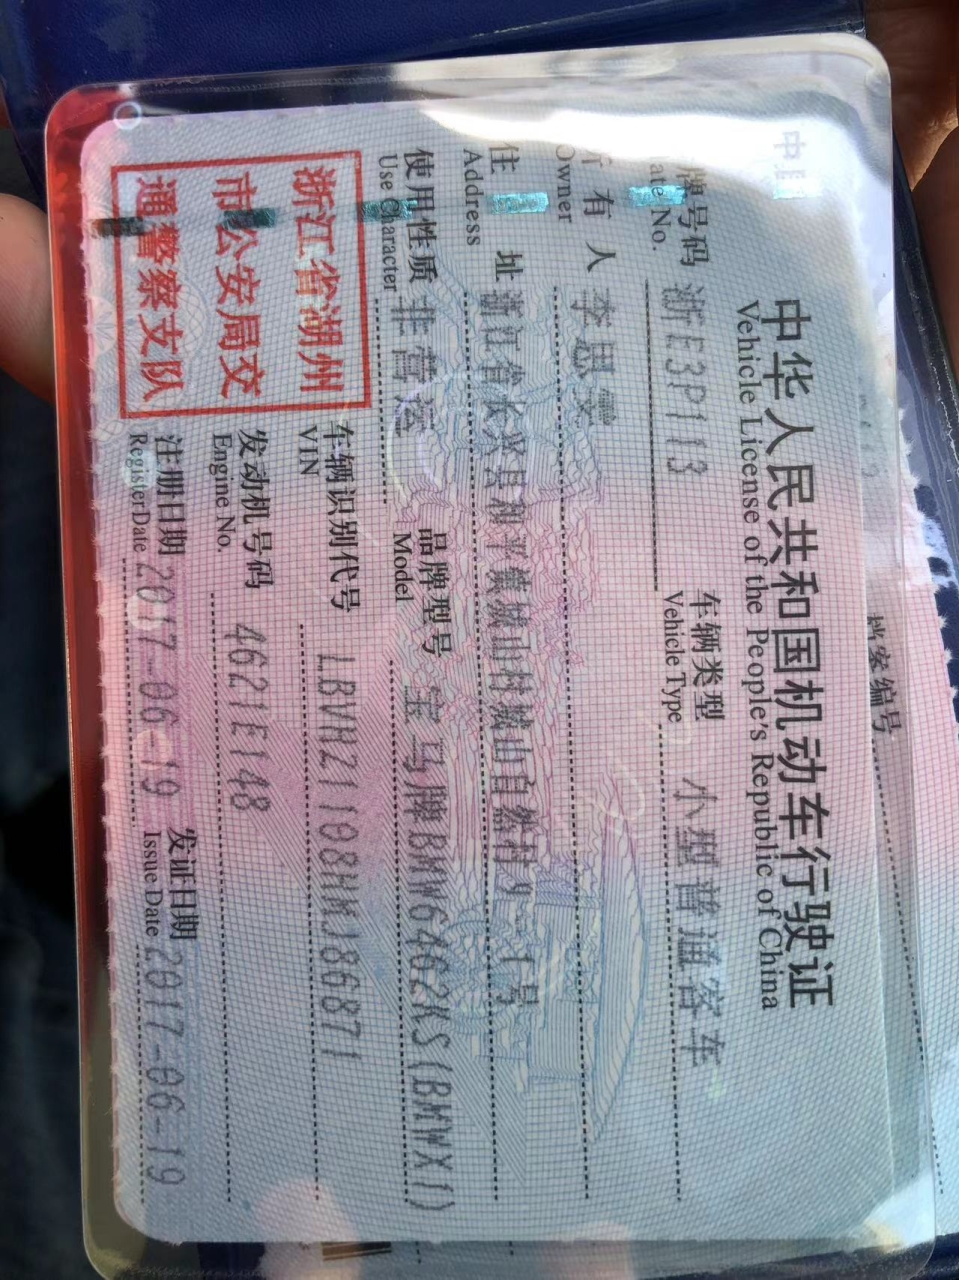 中华人民共和国机动车行驶证
Vehicle License of the People's Republic of China
牌号码 浙E3P113 车辆类型 小型普通客车
No. Vehicle Type
所有人 李思雯
Owner
住址 浙江省长兴县和平镇城山村城山自然村
Address
使用性质 非营运 品牌型号 宝马牌BMW6462KS(BMWX1)
Use Character Model
浙江省湖州
市公安局交
通警察支队
车辆识别代号 LBVHZ1108HMJ86871
VIN
发动机号码 4621E148
Engine No.
注册日期 2017-06-19 发证日期 2017-06-19
Register Date Issue Date
档案编号